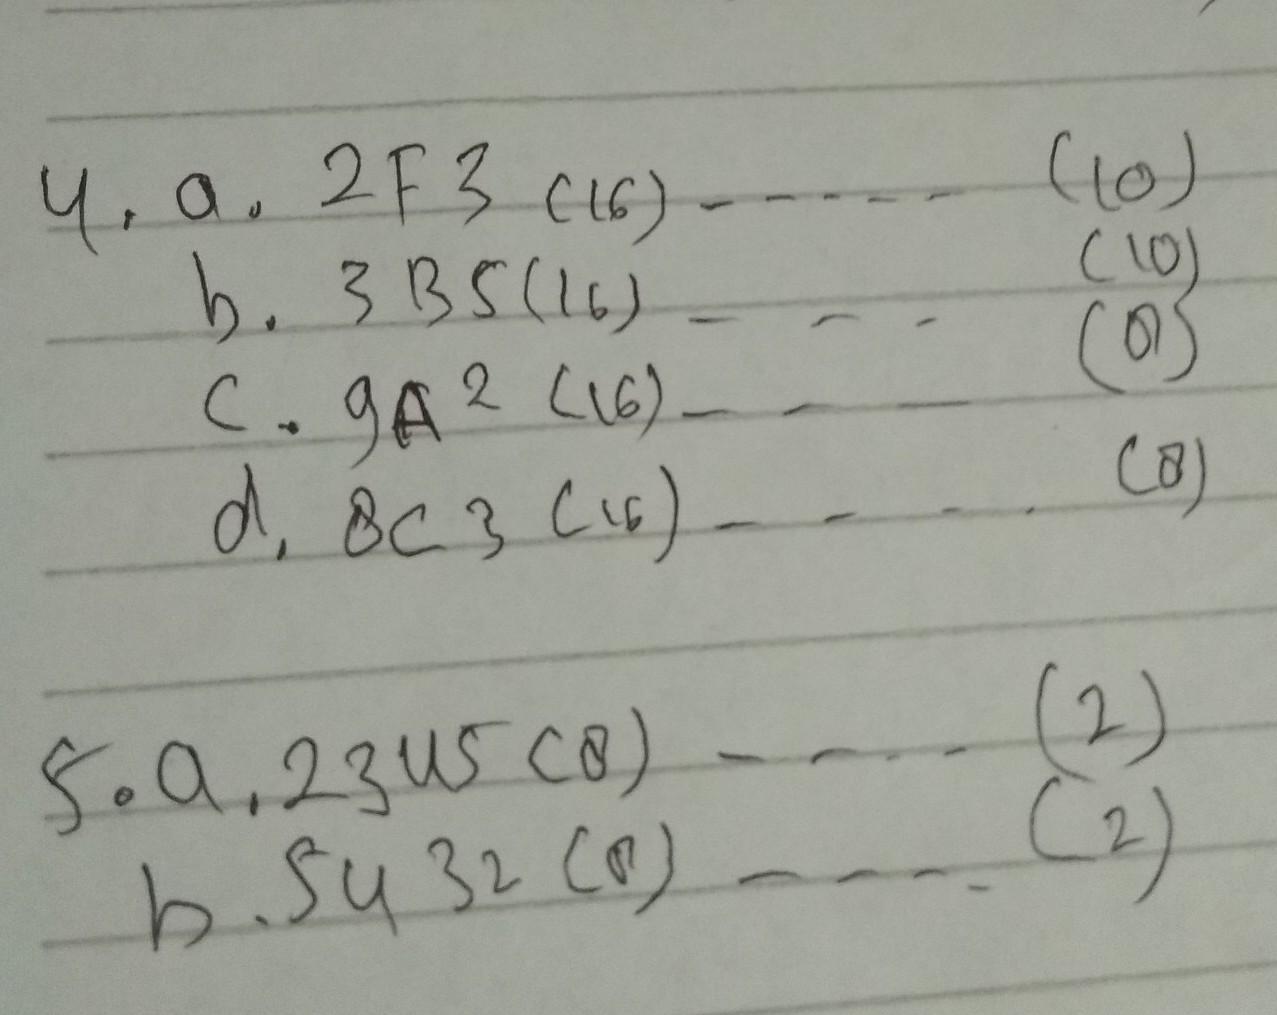 4. a. 2F3 (16) ------ (10)
b. 3B5 (16) - - - (10)
c. 9A2 (16) - - - (8)
d. 8C3 (16) - - - . (8)
5. a. 2345 (8) - - . - (2)
b. 5432 (8) - - - - (2)